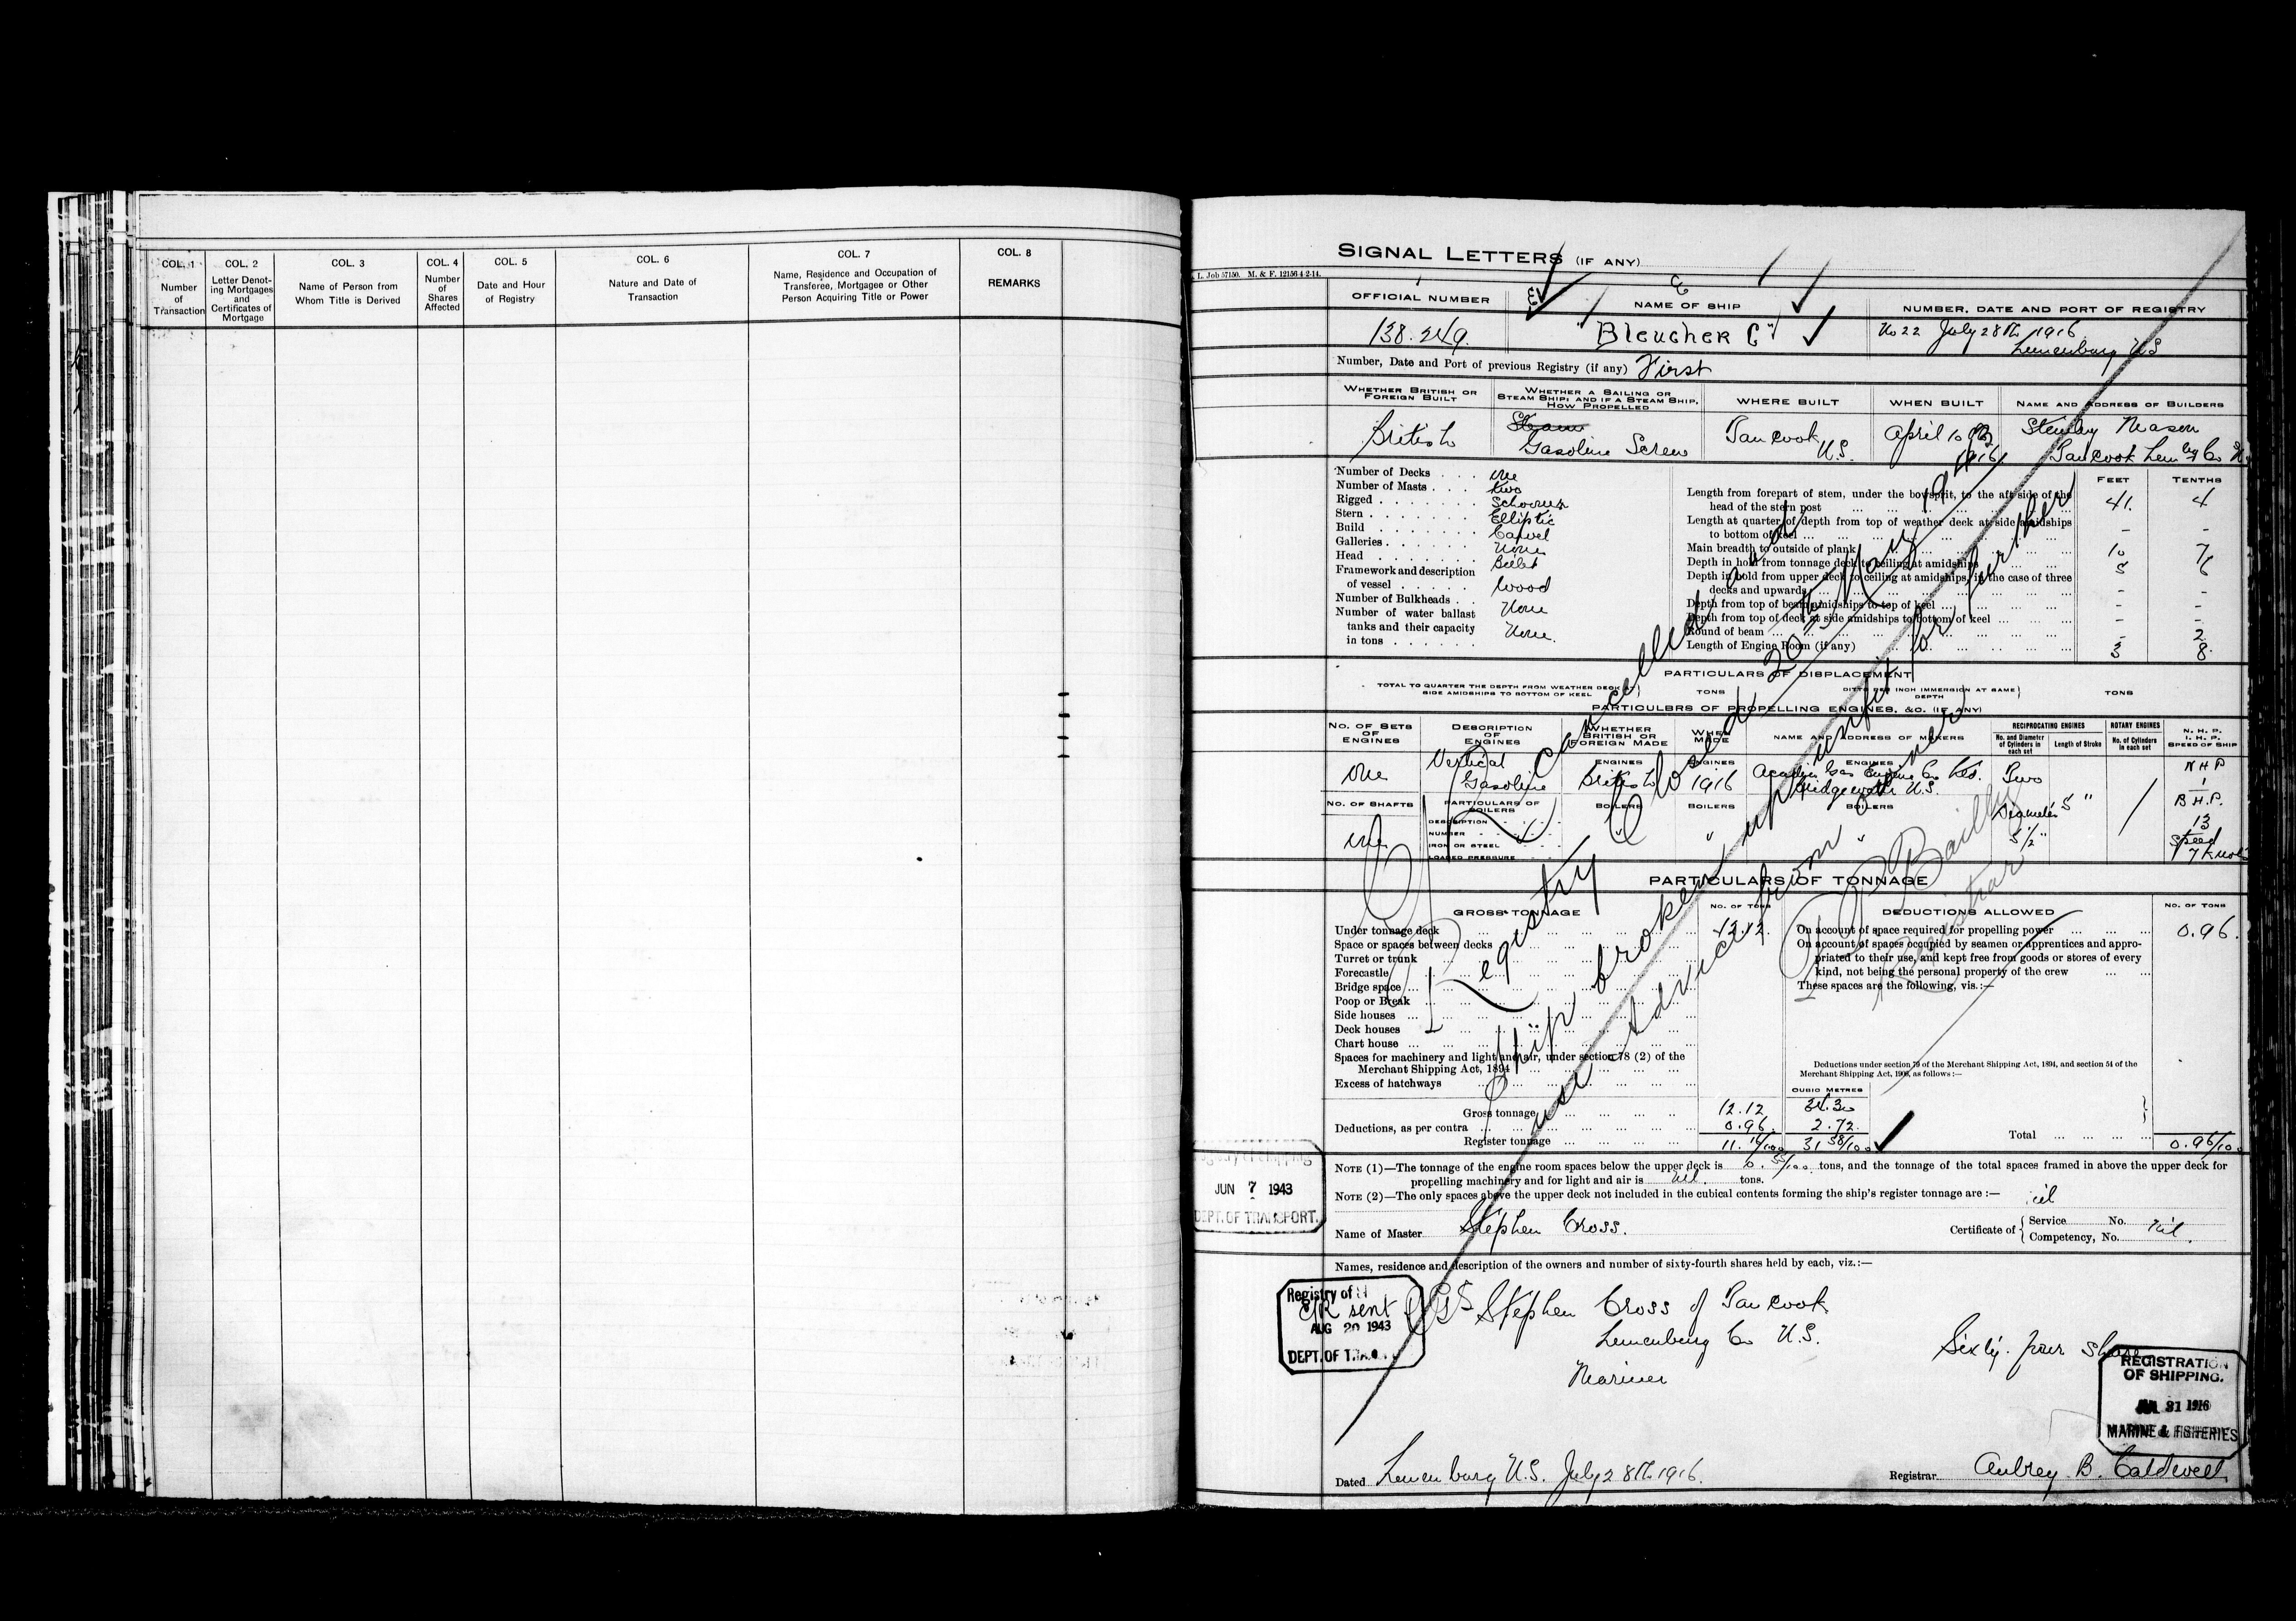 COL. 1
Number
of
Transaction
COL. 2
Letter Denot-
ing Mortgages
and
Certificates of
Mortgage
COL. 3
Name of Person from
Whom Title is Derived
COL. 4
Number
of
Shares
Affected
COL. 5
Date and Hour
of Registry
COL. 6
Nature and Date of
Transaction
COL. 7
Name, Residence and Occupation of
Transferee, Mortgagee or Other
Person Acquiring Title or Power
COL. 8
REMARKS
SIGNAL LETTERS (IF ANY)
L. Job 57150. M. & F. 12156 4-2-14.
OFFICIAL NUMBER
138.249.
NAME OF SHIP
"Bleucher C"
NUMBER, DATE AND PORT OF REGISTRY
No 22 July 28th 1916
Lunenburg N.S
Number, Date and Port of previous Registry (if any) First
WHETHER BRITISH OR
FOREIGN BUILT
British
WHETHER A SAILING OR
STEAM SHIP; AND IF A STEAM SHIP,
HOW PROPELLED
Steam
Gasoline Screw
WHERE BUILT
Tancook
N.S.
WHEN BUILT
April 10
1916
NAME AND ADDRESS OF BUILDERS
Stanley Mason
Tancook Lunbg Co N.
Number of Decks . . . One
Number of Masts . . . Two
Rigged . . . Schooner
Stern . . . Elliptic
Build . . . Carvel
Galleries . . . None
Head . . . Billet
Framework and description
of vessel . . . Wood
Number of Bulkheads . . None
Number of water ballast
tanks and their capacity
in tons . . . None.
FEET TENTHS
Length from forepart of stem, under the bowsprit, to the aft side of the
head of the stern post 41. 4
Length at quarter of depth from top of weather deck at side amidships
to bottom of keel - -
Main breadth to outside of plank 10 7
Depth in hold from tonnage deck to ceiling at amidships 5 6
Depth in hold from upper deck to ceiling at amidships, in the case of three
decks and upwards - -
Depth from top of beam amidships to top of keel - -
Depth from top of deck at side amidships to bottom of keel - -
Round of beam - 2
Length of Engine Room (if any) 3 8
PARTICULARS OF DISPLACEMENT
TOTAL TO QUARTER THE DEPTH FROM WEATHER DECK AT
SIDE AMIDSHIPS TO BOTTOM OF KEEL
TONS
DITTO PER INCH IMMERSION AT SAME
DEPTH
TONS
PARTICULBRS OF PROPELLING ENGINES, &C. (IF ANY)
NO. OF SETS
OF
ENGINES
One
DESCRIPTION
OF
ENGINES
Vertical
Gasoline
WHETHER
BRITISH OR
FOREIGN MADE
ENGINES
British
WHEN
MADE
ENGINES
1916
NAME AND ADDRESS OF MAKERS
ENGINES
Acadia Gas Engine Co Ltd.
Bridgewater N.S.
RECIPROCATING ENGINES
No. and Diameter
of Cylinders in
each set
Length of Stroke
Two
Diameter 5"
5 1/2"
ROTARY ENGINES
No. of Cylinders
in each set
N. H. P.
I. H. P.
SPEED OF SHIP
N H P
1
B H.P.
13
Speed
7 Knots
NO. OF SHAFTS
One
PARTICULARS OF
BOILERS
DESCRIPTION
NUMBER
IRON OR STEEL
LOADED PRESSURE
BOILERS
BOILERS
BOILERS
PARTICULARS OF TONNAGE
GROSS TONNAGE
NO. OF TONS
Under tonnage deck 12.12.
Space or spaces between decks
Turret or trunk
Forecastle
Bridge space
Poop or Break
Side houses
Deck houses
Chart house
Spaces for machinery and light and air, under section 78 (2) of the
Merchant Shipping Act, 1894
Excess of hatchways
CUBIC METRES
Gross tonnage 12.12 34.30
Deductions, as per contra 0.96 2.72
Register tonnage 11.16/100 31 58/100
DEDUCTIONS ALLOWED
NO. OF TONS
On account of space required for propelling power 0.96.
On account of spaces occupied by seamen or apprentices and appro-
priated to their use, and kept free from goods or stores of every
kind, not being the personal property of the crew
These spaces are the following, vis.:—
Deductions under section 79 of the Merchant Shipping Act, 1894, and section 54 of the
Merchant Shipping Act, 1906, as follows:—
Total 0.96/100
NOTE (1)—The tonnage of the engine room spaces below the upper deck is 0. 55/100 tons, and the tonnage of the total spaces framed in above the upper deck for
propelling machinery and for light and air is nil. tons.
NOTE (2)—The only spaces above the upper deck not included in the cubical contents forming the ship's register tonnage are:— nil
Name of Master Stephen Cross.
Certificate of { Service No.
Competency, No. nil.
Names, residence and description of the owners and number of sixty-fourth shares held by each, viz.:—
Stephen Cross of Tancook
Lunenburg Co N.S.
Mariner
Sixty four shares
Dated Lunenburg N.S. July 28th 1916.
Registrar Aubrey B. Caldwell
Registry cancelled and
Closed 20th May 1943
Ship broken up unfit for further
use. Advice from owner
Bailly
Registrar
JUN 7 1943
DEPT. OF TRANSPORT.
Registry of
C/R sent
AUG 20 1943
DEPT. OF TRA
REGISTRATION
OF SHIPPING.
JUL 31 1916
MARINE & FISHERIES